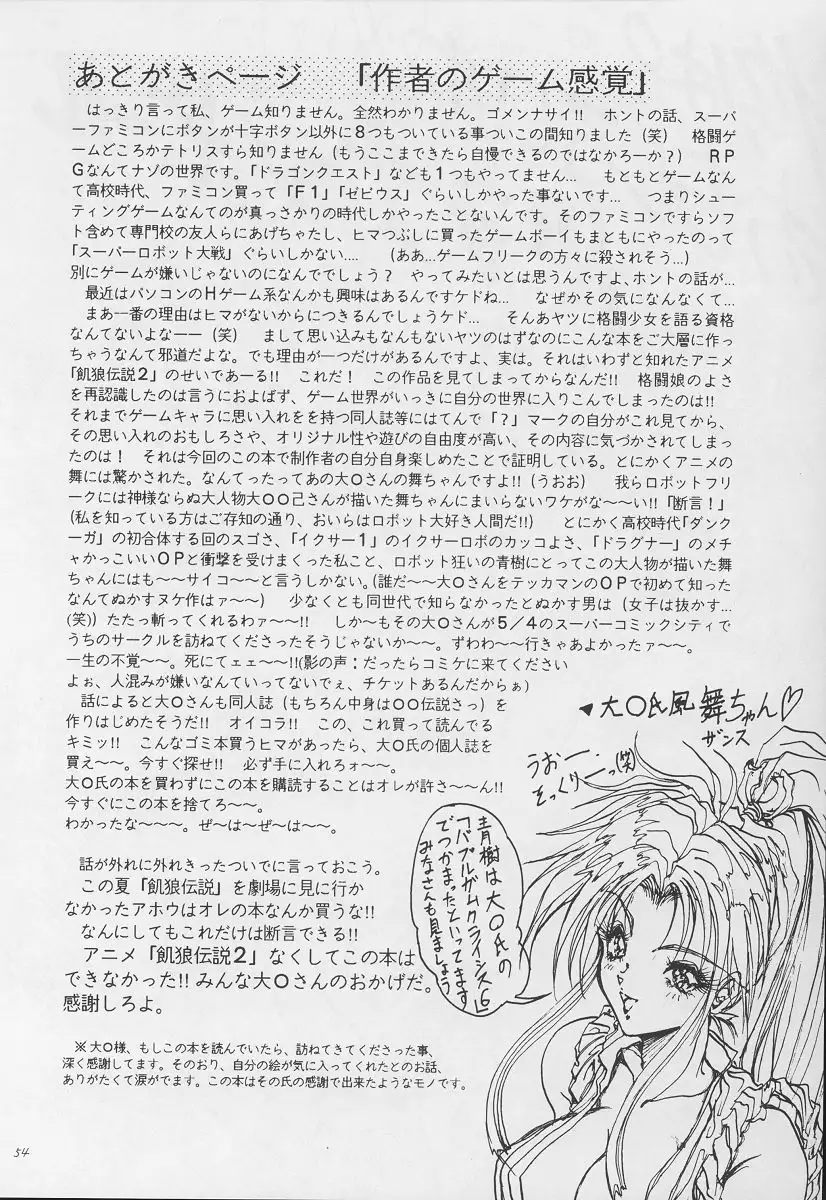 あとがきページ 「作者のゲーム感覚」
はっきり言って私、ゲーム知りません。全然わかりません。ゴメンナサイ!! ホントの話、スーパ
ーファミコンにボタンが十字ボタン以外に８つもついている事ついこの間知りました（笑） 格闘ゲ
ームどころかテトリスすら知りません（もうここまできたら自慢できるのではなかろーか？） ＲＰ
Ｇなんてナゾの世界です。「ドラゴンクエスト」なども１つもやってません… もともとゲームなん
て高校時代、ファミコン買って「Ｆ１」「ゼビウス」ぐらいしかやった事ないです… つまりシュー
ティングゲームなんてのが真っさかりの時代しかやったことないんです。そのファミコンですらソフ
ト含めて専門校の友人らにあげちゃたし、ヒマつぶしに買ったゲームボーイもまともにやったのって
「スーパーロボット大戦」ぐらいしかない…. （ああ…ゲームフリークの方々に殺されそう…）
別にゲームが嫌いじゃないのになんででしょう？ やってみたいとは思うんですよ、ホントの話が…
最近はパソコンのＨゲーム系なんかも興味はあるんですケドね… なぜかその気になんなくて…
まあ一番の理由はヒマがないからにつきるんでしょうケド… そんあヤツに格闘少女を語る資格
なんてないよなーー（笑） まして思い込みもなんもないヤツのはずなのにこんな本をご大層に作っ
ちゃうなんて邪道だよな。でも理由が一つだけがあるんですよ、実は。それはいわずと知れたアニメ
「餓狼伝説２」のせいであーる!! これだ！ この作品を見てしまってからなんだ!! 格闘娘のよさ
を再認識したのは言うにおよばず、ゲーム世界がいっきに自分の世界に入りこんでしまったのは!!
それまでゲームキャラに思い入れをを持つ同人誌等にはてんで「？」マークの自分がこれ見てから、
その思い入れのおもしろさや、オリジナル性や遊びの自由度が高い、その内容に気づかされてしまっ
たのは！ それは今回のこの本で制作者の自分自身楽しめたことで証明している。とにかくアニメの
舞には驚かされた。なんてったってあの大〇さんの舞ちゃんですよ!!（うおお） 我らロボットフリ
ークには神様ならぬ大人物大〇〇己さんが描いた舞ちゃんにまいらないワケがな〜〜い!!「断言！」
（私を知っている方はご存知の通り、おいらはロボット大好き人間だ!!） とにかく高校時代「ダンク
ーガ」の初合体する回のスゴさ、「イクサー１」のイクサーロボのカッコよさ、「ドラグナー」のメチ
ャかっこいいＯＰと衝撃を受けまくった私こと、ロボット狂いの青樹にとってこの大人物が描いた舞
ちゃんにはも〜〜サイコ〜〜と言うしかない。（誰だ〜〜大〇さんをテッカマンのＯＰで初めて知った
なんてぬかすヌケ作はァ〜〜） 少なくとも同世代で知らなかったとぬかす男は（女子は抜かす…
（笑））たたっ斬ってくれるわァ〜〜!! しか〜もその大〇さんが５／４のスーパーコミックシティで
うちのサークルを訪ねてくださったそうじゃないか〜〜。ずわわ〜〜行きゃあよかったァ〜〜。
一生の不覚〜〜。死にてェェ〜〜!!（影の声：だったらコミケに来てください
よぉ、人混みが嫌いなんていってないでぇ、チケットあるんだからぁ）
話によると大〇さんも同人誌（もちろん中身は〇〇伝説さっ）を
作りはじめたそうだ!! オイコラ!! この、これ買って読んでる
キミッ!! こんなゴミ本買うヒマがあったら、大〇氏の個人誌を
買え〜〜。今すぐ探せ!! 必ず手に入れろォ〜〜。
大〇氏の本を買わずにこの本を購読することはオレが許さ〜〜ん!!
今すぐにこの本を捨てろ〜〜。
わかったな〜〜〜。ぜ〜は〜ぜ〜は〜〜。
話が外れに外れきったついでに言っておこう。
この夏「餓狼伝説」を劇場に見に行か
なかったアホウはオレの本なんか買うな!!
なんにしてもこれだけは断言できる!!
アニメ「餓狼伝説２」なくしてこの本は
できなかった!! みんな大〇さんのおかげだ。
感謝しろよ。
※大〇様、もしこの本を読んでいたら、訪ねてきてくださった事、
深く感謝してます。そのおり、自分の絵が気に入ってくれたとのお話、
ありがたくて涙がでます。この本はその氏の感謝で出来たようなモノです。
▼大〇氏風舞ちゃん♡
ザンス
うおー
そっくりーっ（笑）
青樹は大〇氏の
「バブルガムクライシス６」
でつかまったといってます
みなさんも見ましょう
54